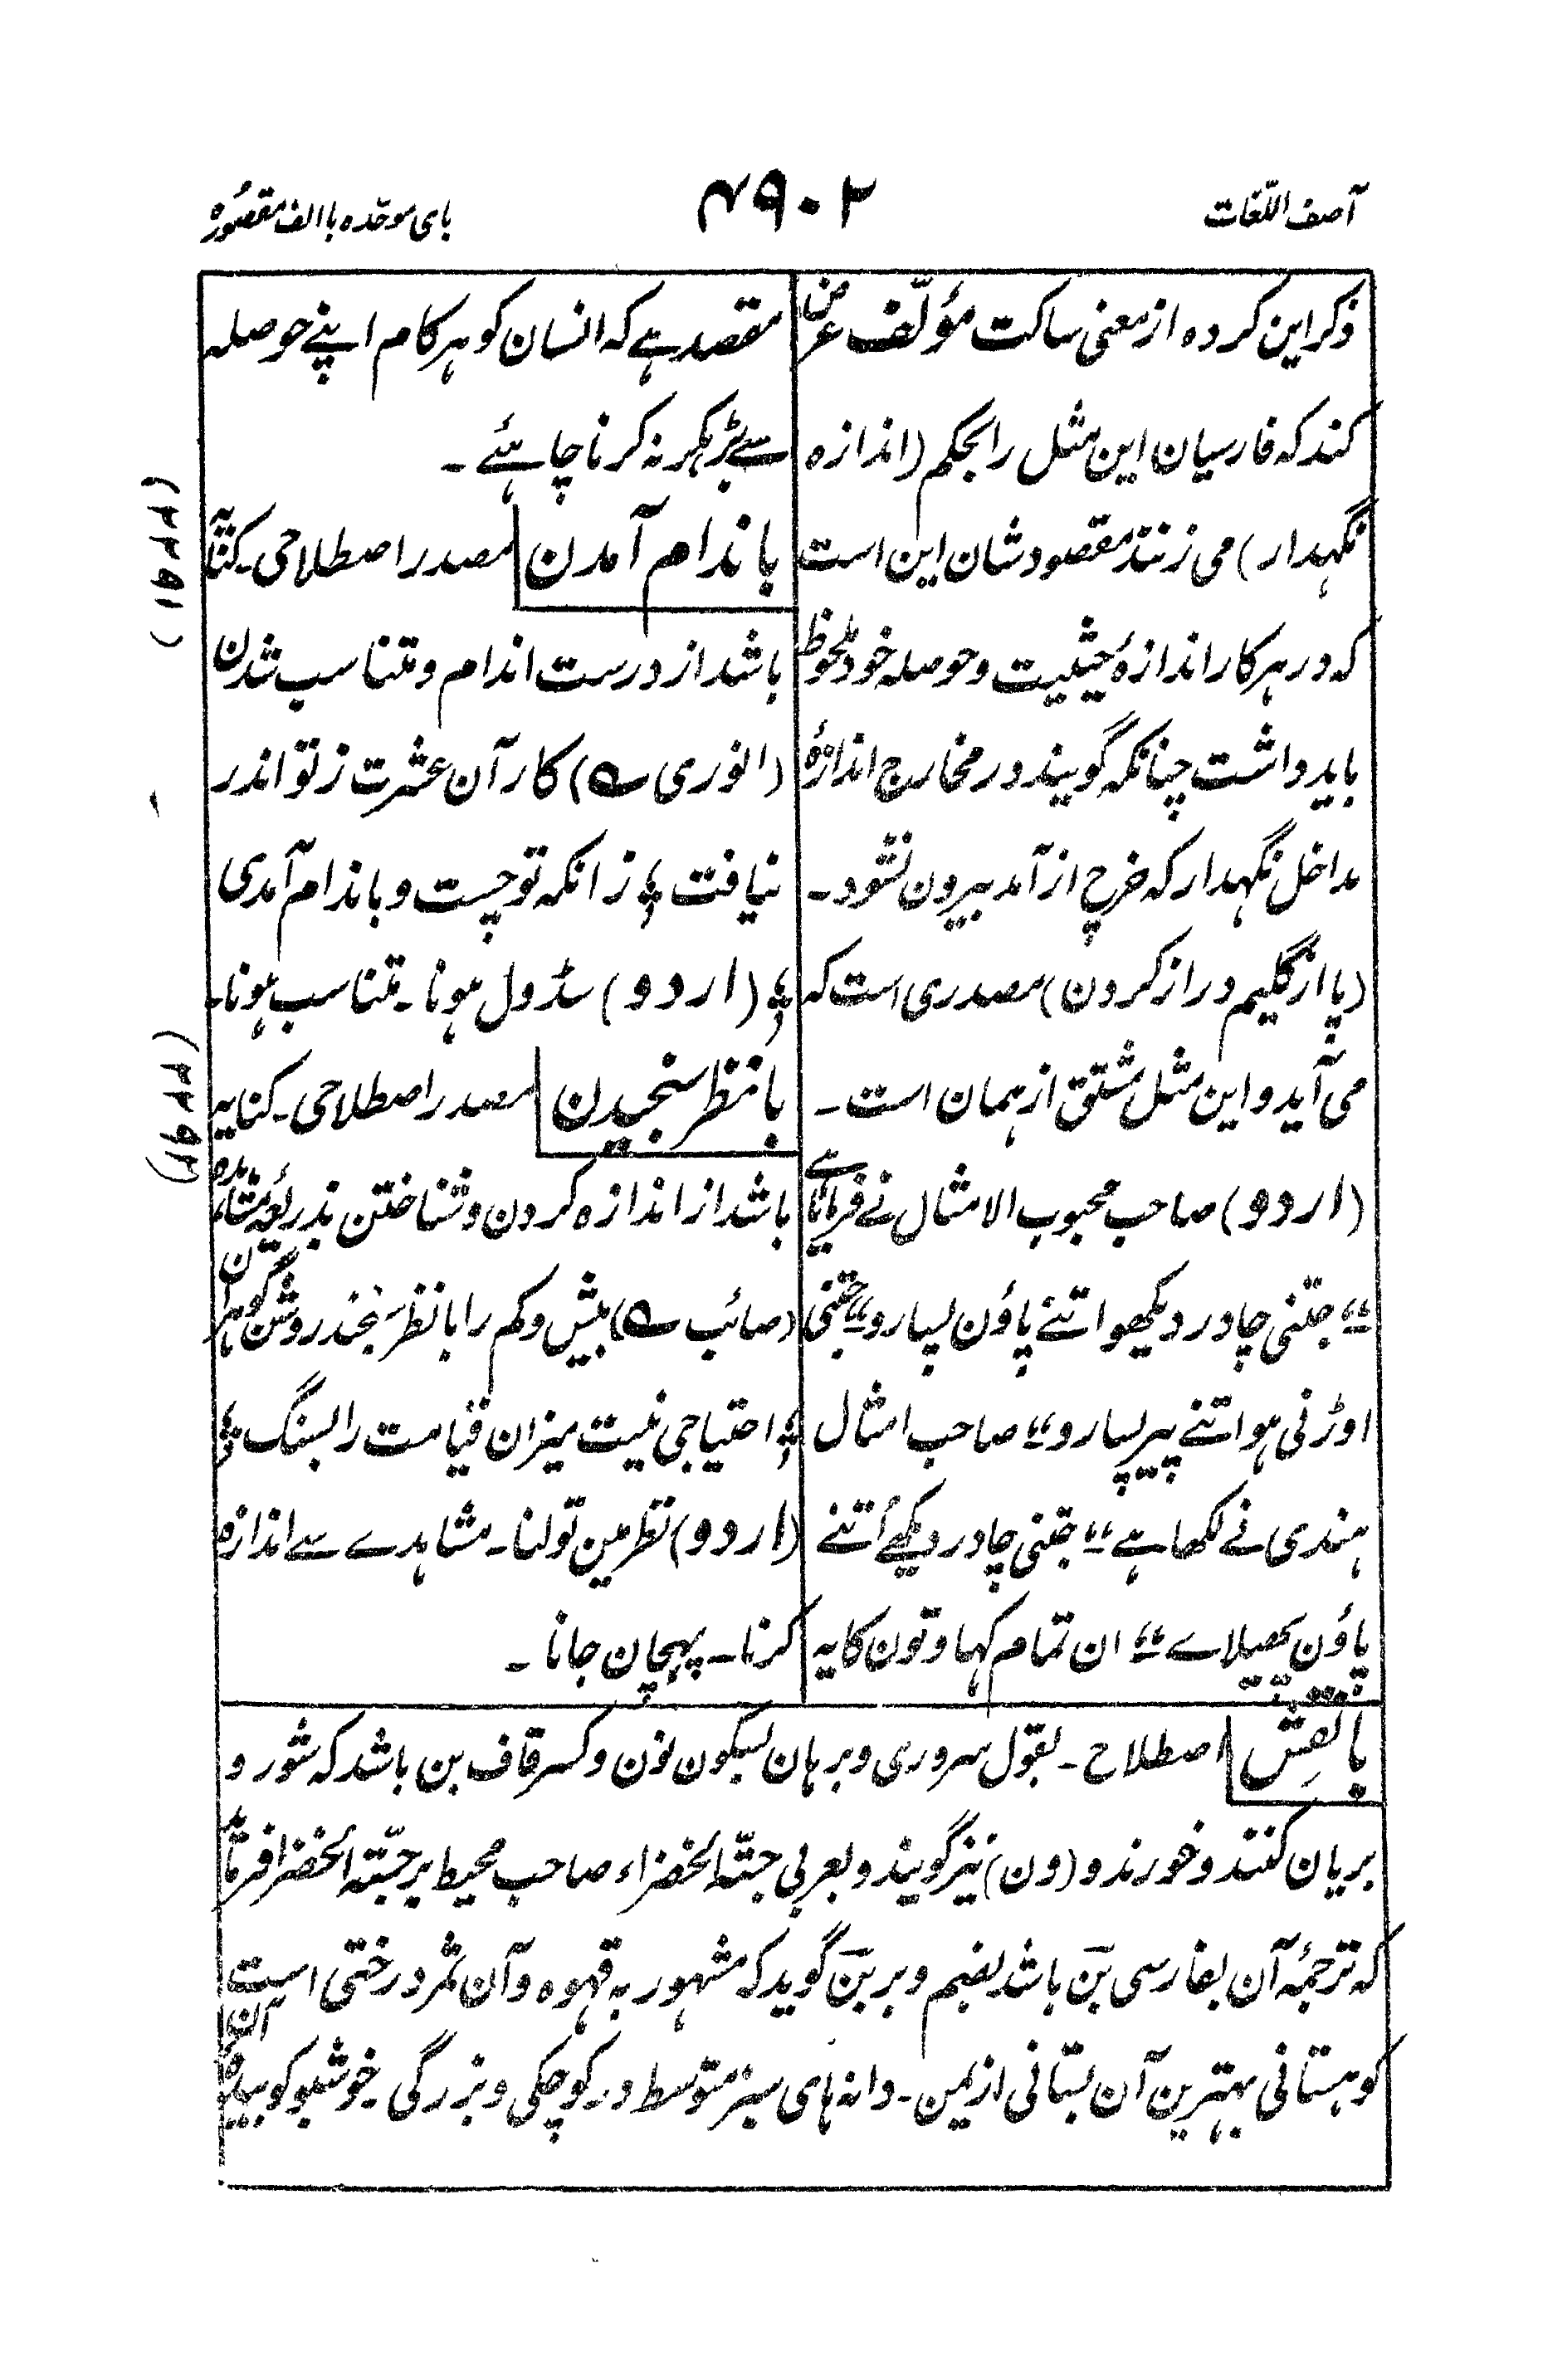 آصف اللّغات
۴۹۰۲
بای موحّده با الف مقصُورہ
ذکر این کردہ از معنی ساکت مؤلّف عرض
کند کہ فارسیان این مثل را بحکم (اندازہ
نگہدار) می زنند مقصود شان این است
کہ در ہر کار اندازۂ حیثیت و حوصلہ خود ملحوظ
باید داشت چنانکہ گویند در مخارج اندازۂ
مداخل نگہدار کہ خرچ از آمد بیرون نشود۔
(پا از گلیم دراز کردن) مصدری است کہ
می آید و این مثل مشتق از ہمان است۔
(اردو) صاحب محبوب الامثال نے فرمایا ہے
"جتنی چادر دیکھو اتنے پاؤن پسارو" "جتنی
اوڑنی ہو اتنے پیر پسارو" صاحب امثال
ہندی نے لکھا ہے "جتنی چادر دیکھے اُتنے
پاؤن پھیلاے" ان تمام کہاوتون کا یہ
مقصد ہے کہ انسان کو ہر کام اپنے حوصلہ
سے بڑہکر نہ کرنا چاہئے۔
(۲۲۹۱)
باندام آمدن | مصدر اصطلاحی۔ کنایہ
باشد از درست اندام و متناسب شدن
(انوری ؎) کار آن عشرت ز تو اندر
نیافت ؛ زانکہ تو چست و باندام آمدی
؛ (اردو) سڈول ہونا۔ متناسب ہونا۔
(۲۲۹۲)
بانظر سنجیدن | مصدر اصطلاحی۔ کنایہ
باشد از اندازہ کردن و شناختن بذریعۂ مشاہدہ
(صائب ؎) بیش و کم را با نظر سنجند روشن گوہران
؛ احتیاجی نیست میزان قیامت را بسنگ ؛
(اردو) نظر مین تولنا۔ مشاہدے سے اندازہ
کرنا۔ پہچان جانا۔
بانقِش | اصطلاح۔ بقول سروری و برہان بسکون نون و کسر قاف بن باشد کہ شور و
بریان کنند و خورند و (ون) نیز گویند و بعربی حبّۃ الخضراء صاحب محیط بر حبّۃ الخضرا فرماید
کہ ترجمۂ آن بفارسی بَن باشد بضم و بر بَن گوید کہ مشہور بہ قہوہ و آن ثمر درختی است
کوہستانی بہترین آن بستانی از یمن۔ دانہ ہای سبز متوسط در کوچکی و بزرگی۔ خوشبو کوبیدہ آن